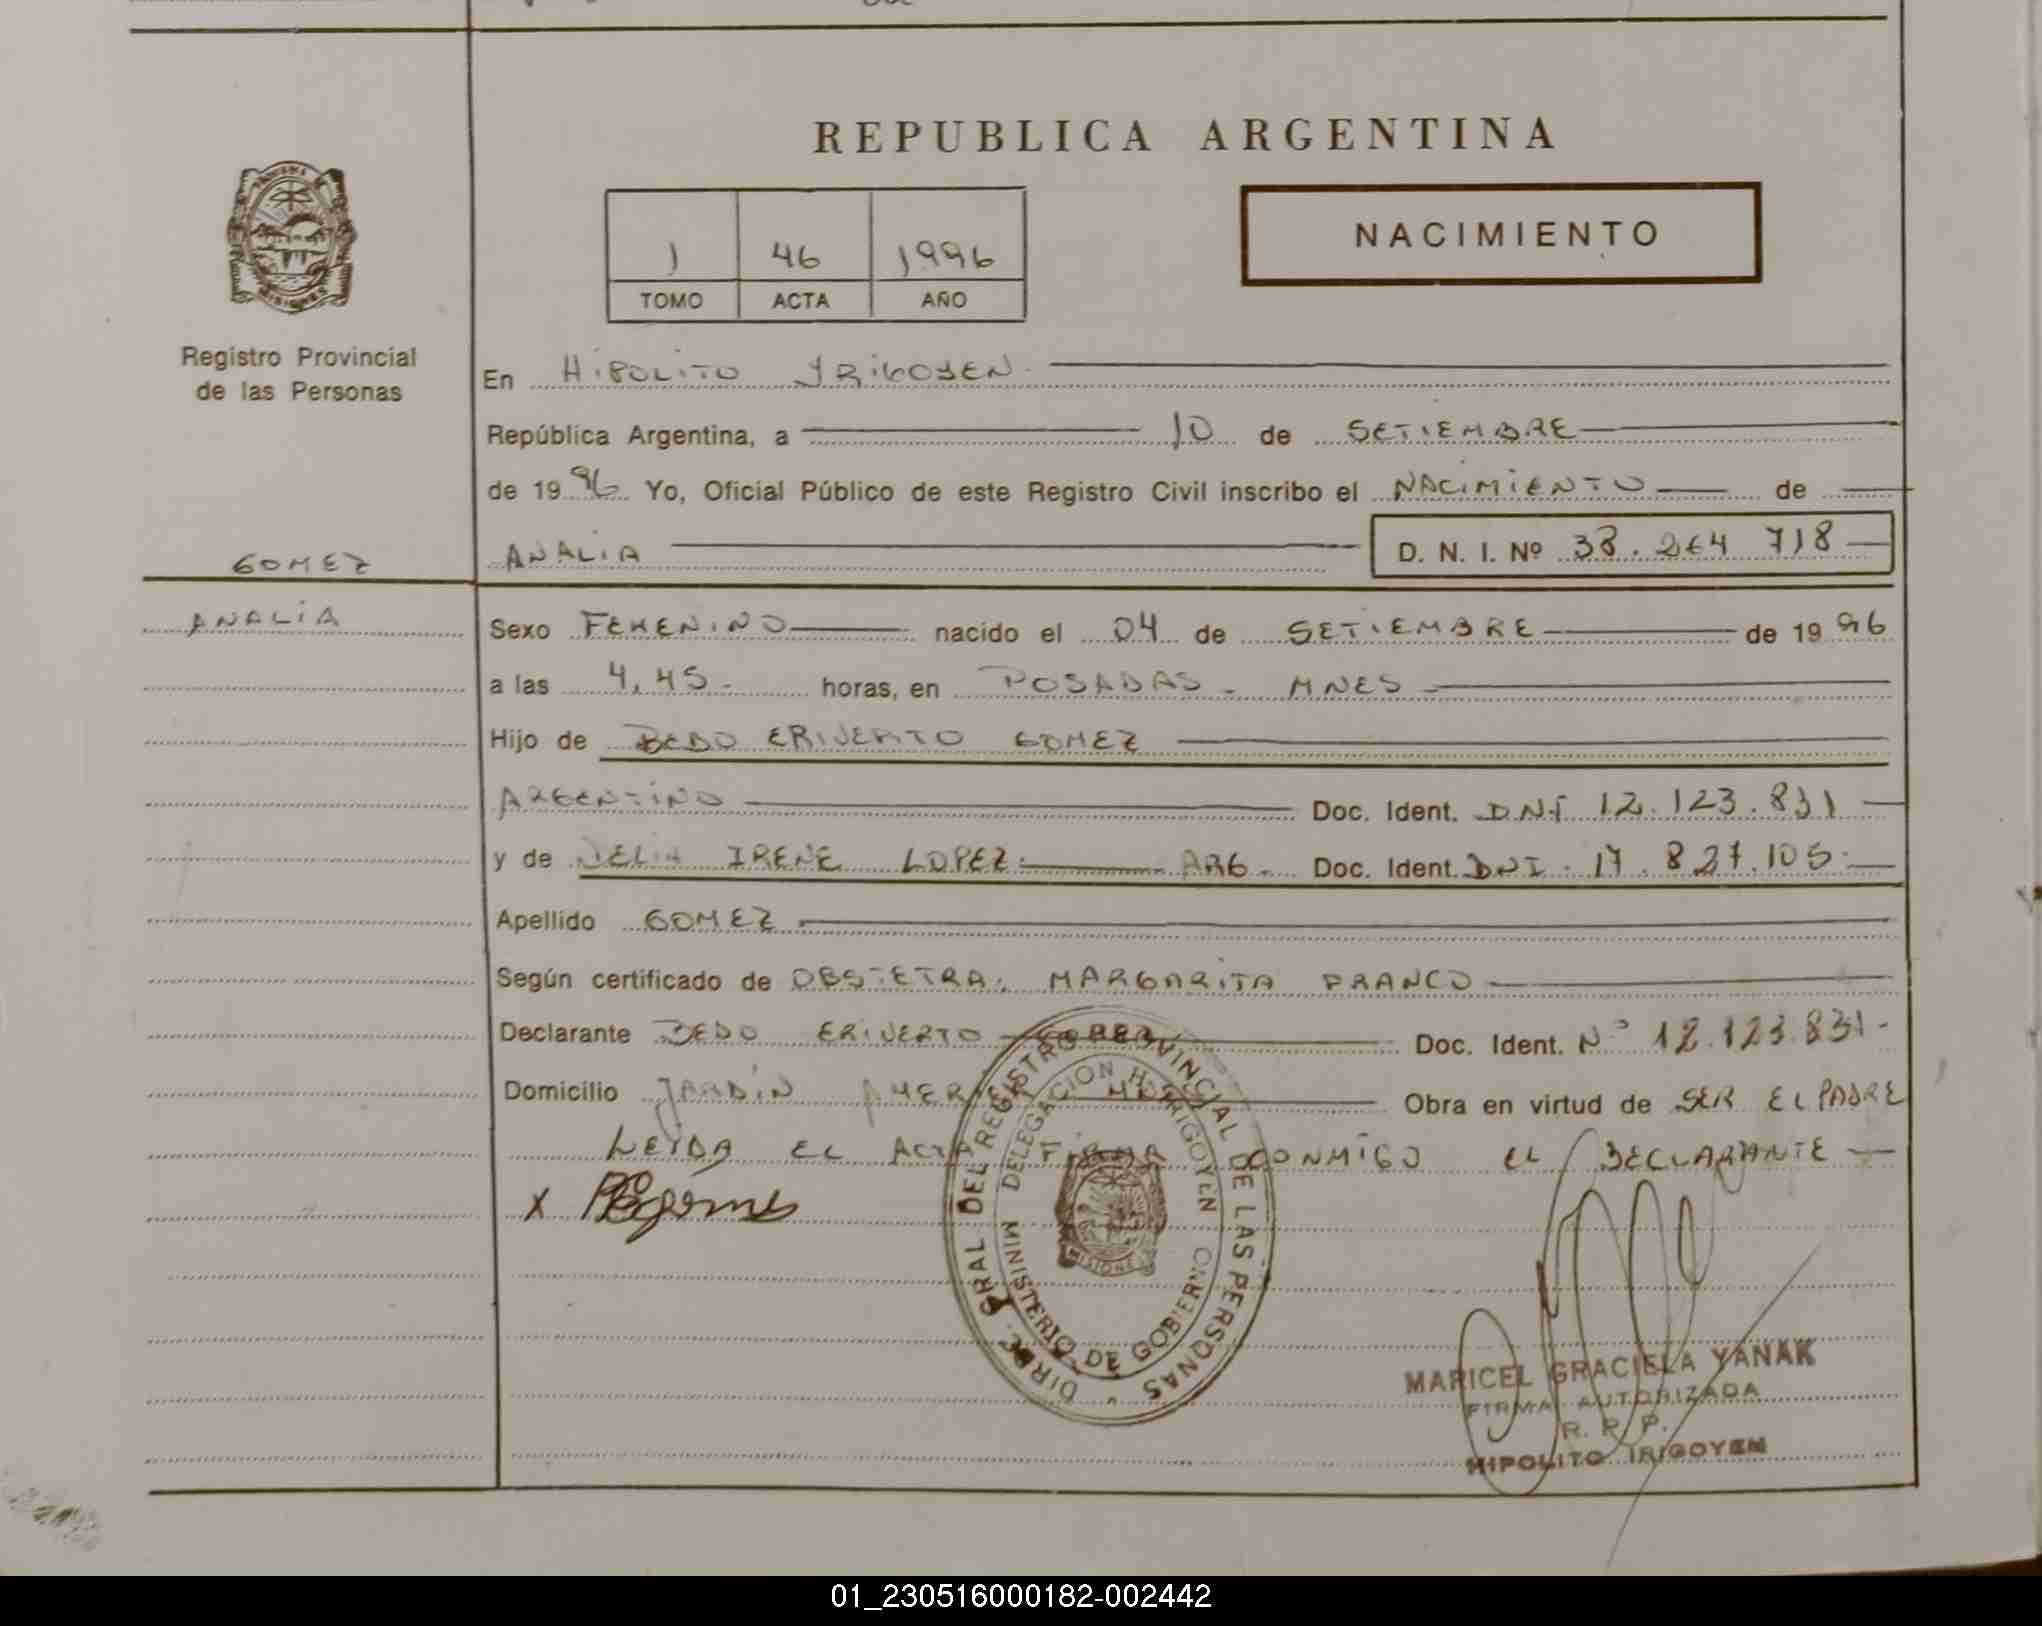 REPUBLICA ARGENTINA
1 46 1996
TOMO ACTA AÑO
NACIMIENTO
MISIONES
Registro Provincial
de las Personas
En HIPOLITO YRIGOYEN
República Argentina, a 10 de SETIEMBRE
de 1996 Yo, Oficial Público de este Registro Civil inscribo el NACIMIENTO de
ANALIA D. N. I. Nº 38.264 718
GOMEZ
ANALIA
Sexo FEMENINO nacido el 04 de SETIEMBRE de 1996
a las 4,45- horas, en POSADAS - MNES
Hijo de BEDO ERIVERTO GOMEZ
ARGENTINO Doc. Ident. DNI 12.123.831
y de IRENE LOPEZ ARG. Doc. Ident. DNI. 17.827.105
Apellido GOMEZ
Según certificado de OBSTETRA: MARGARITA FRANCO
Declarante BEDO ERIVERTO GOMEZ Doc. Ident. Nº 12.123.831-
Domicilio JARDIN Obra en virtud de SER EL PADRE
LEIDA EL ACTA FIRMA CONMIGO EL DECLARANTE
X
DIREC. GRAL DEL REGISTRO PROVINCIAL DE LAS PERSONAS
DELEGACION H. YRIGOYEN
MINISTERIO DE GOBIERNO
MISIONES
MARICEL GRACIELA YANAK
FIRMA AUTORIZADA
R. R. P.
HIPOLITO IRIGOYEN
01_230516000182-002442